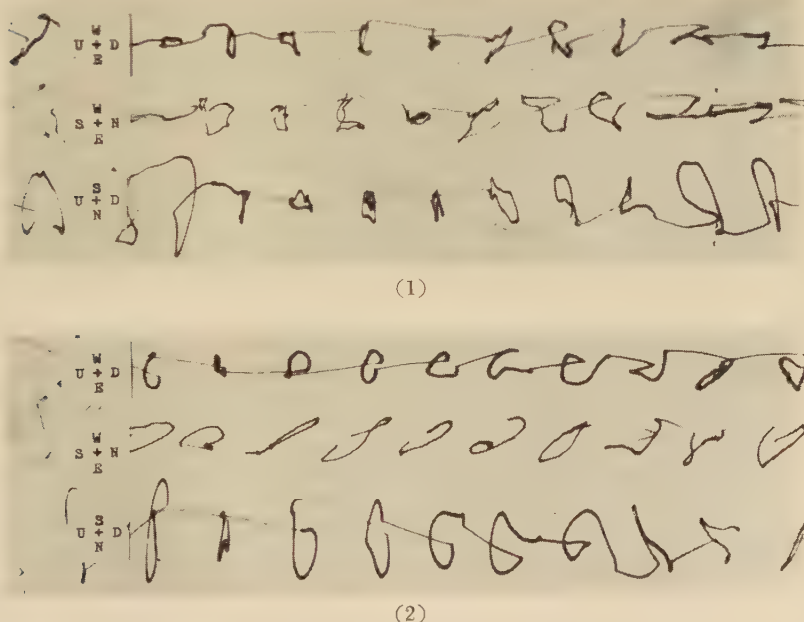 W
U + D
E
W
S + N
E
S
U + D
N
(1)
W
U + D
E
W
S + N
E
S
U + D
N
(2)